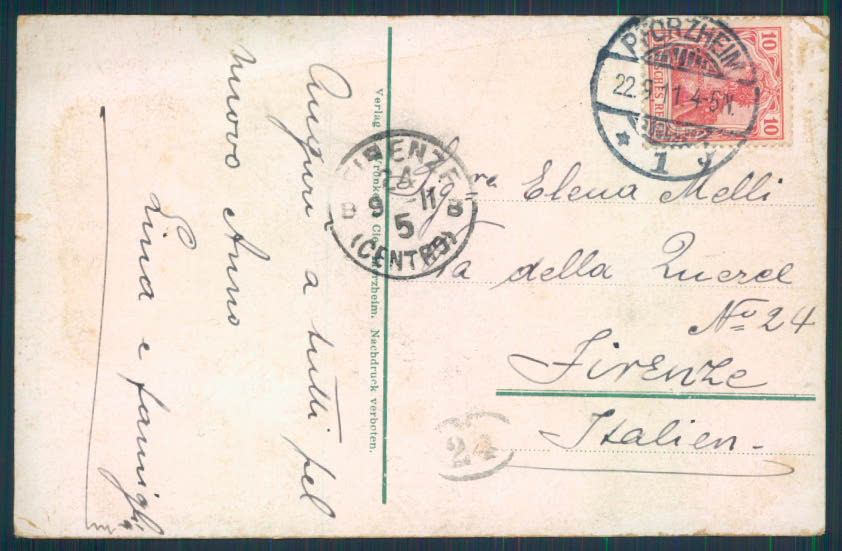 Auguri a tutti pel
nuovo Anno
Lina e famigli
Verlag Cie. Pforzheim. Nachdruck verboten.
FIRENZE
24
B 9 - 11 B
5
(CENTRO)
PFORZHEIM
22.9. 11 4-5N.
* 1
10
10
Sigra Elena Melli
Via della Querce
No 24
Firenze
Italien.
24